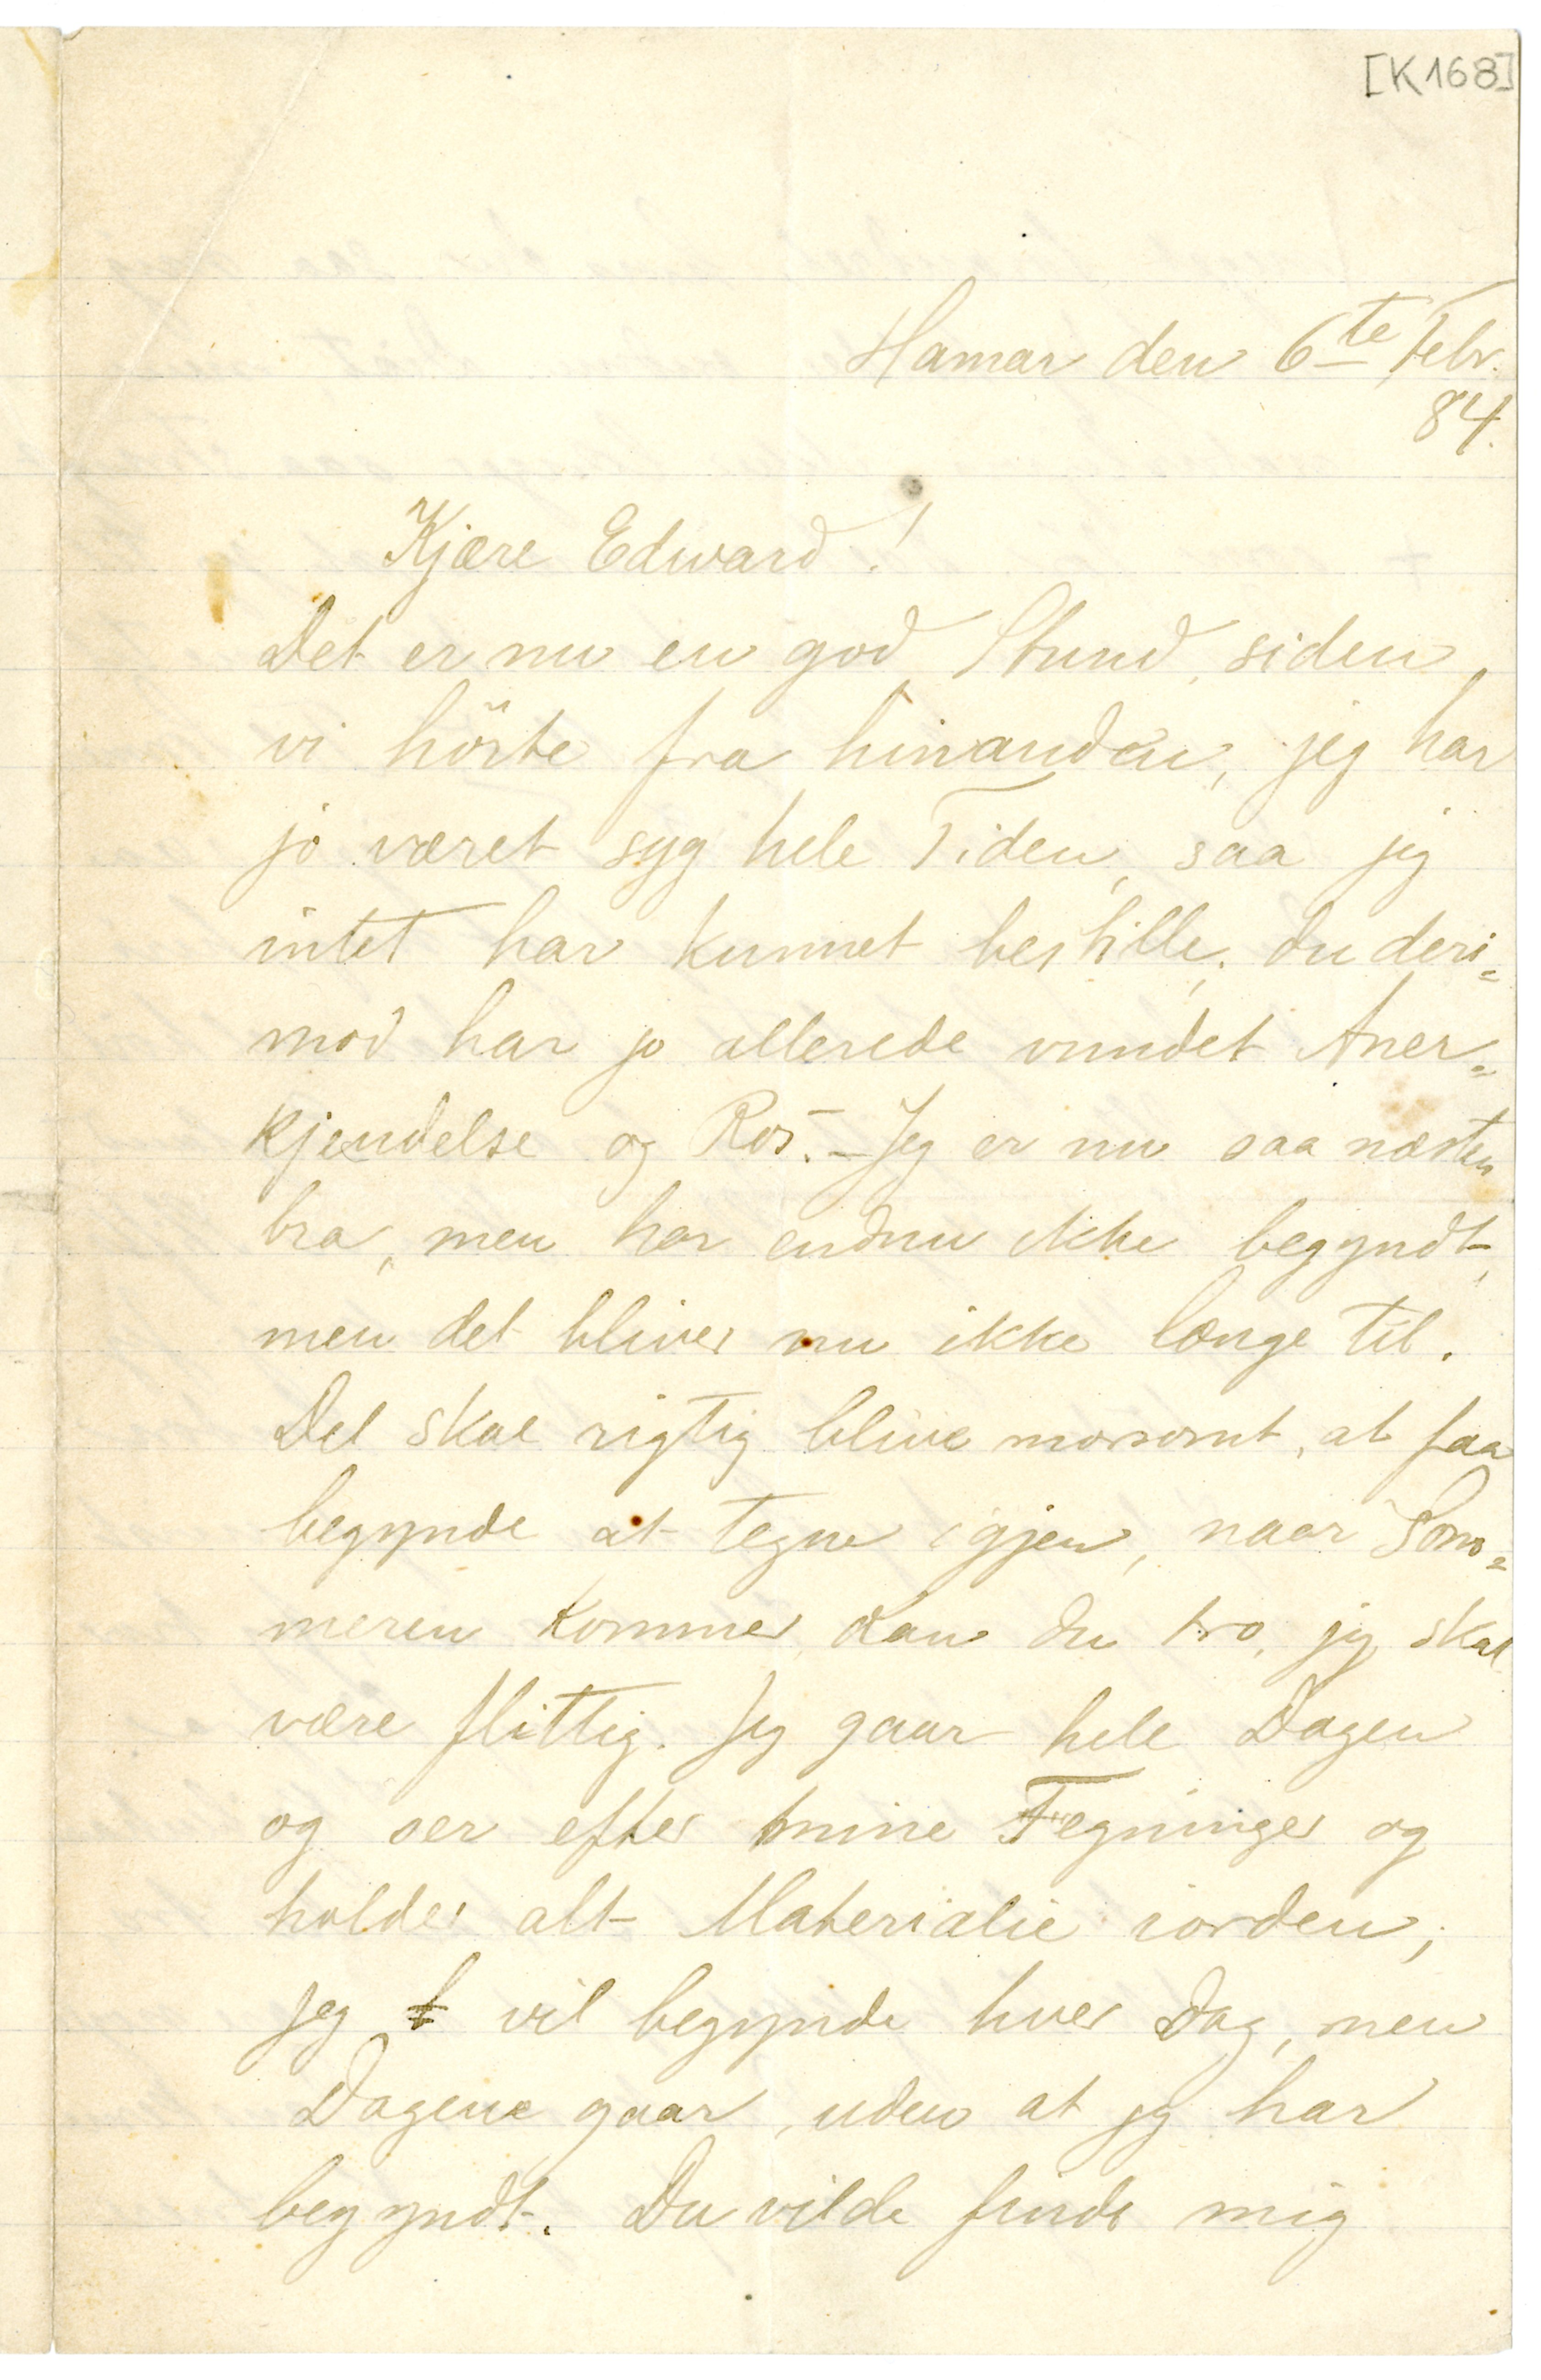 [K168]
Hamar den 6te Febr.
84.
Kjære Edward!
Det er nu en god Stund, siden
vi hørte fra hinanden, jeg har
jo været syg hele Tiden, saa jeg
intet har kunnet bestille. du deri=
mod har jo allerede vundet Aner=
kjendelse og Ros. – Jeg er nu saa næsten
bra, men har endnu ikke begyndt,
men det bliver nu ikke længe til.
Det skal rigtig blive morsomt, at faa
begynde at tegne igjen, naar Som=
meren kommer, kan du tro, jeg skal
være flittig. Jeg gaar hele Dagen
og ser efter mine Tegninger og
holder alt Materialie iorden;
jeg vil begynde hver Dag, men
Dagene gaar, uden at jeg har
begyndt. Du vilde finde mig